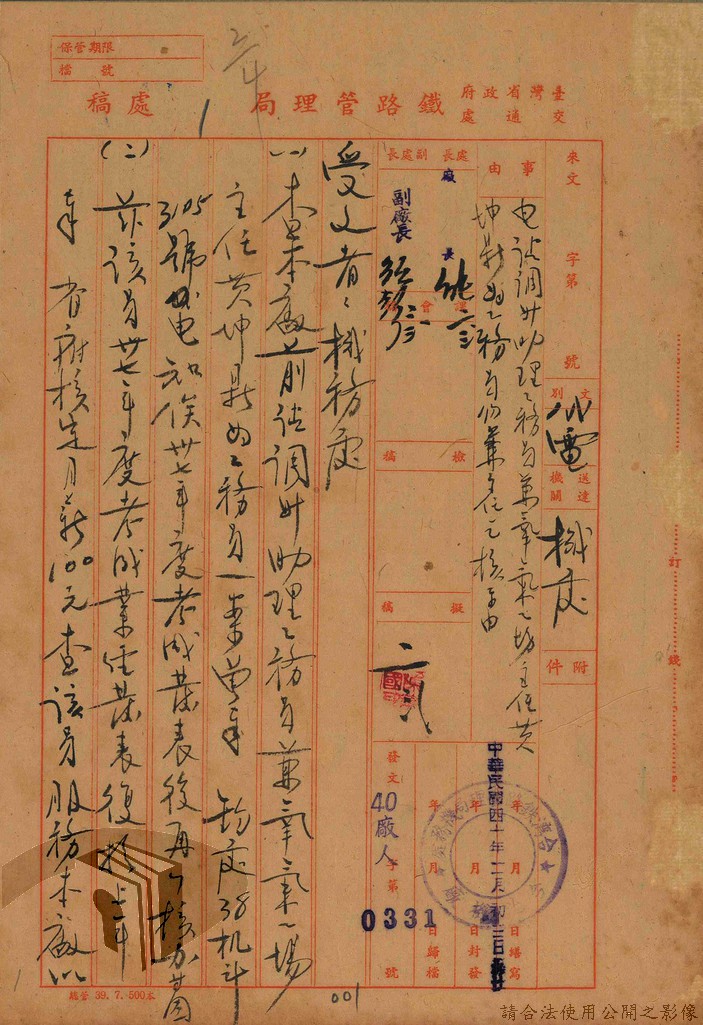 保管期限
檔號
臺灣省政府
交通處
鐵路管理局
處稿
來文 字第 號
事由
電請調升助理工務員兼氧氣場主任黃
坤鼎為工務員仍兼主任乞核示由
文別
代電
送達機關
機處
附件
處長
副處長
廠長
副廠長
會
課
檢稿
擬稿
中華民國四十年二月初三日
年 月 日繕寫
年 月 日封發
年 月 日歸檔
發文 字第 號
40廠人
0331
受文者：機務處
(一)查本廠前請調升助理工務員兼氧氣場
主任黃坤鼎為工務員一案
鈞處38機斗
3105號代電 知俟卅七年度考成業表後再
(二)茲該員卅七年度考成業
奉 省府核定月薪100元查該員服務本廠以
訂
線
鐵管 39.7.500本
001
請合法使用公開之影像